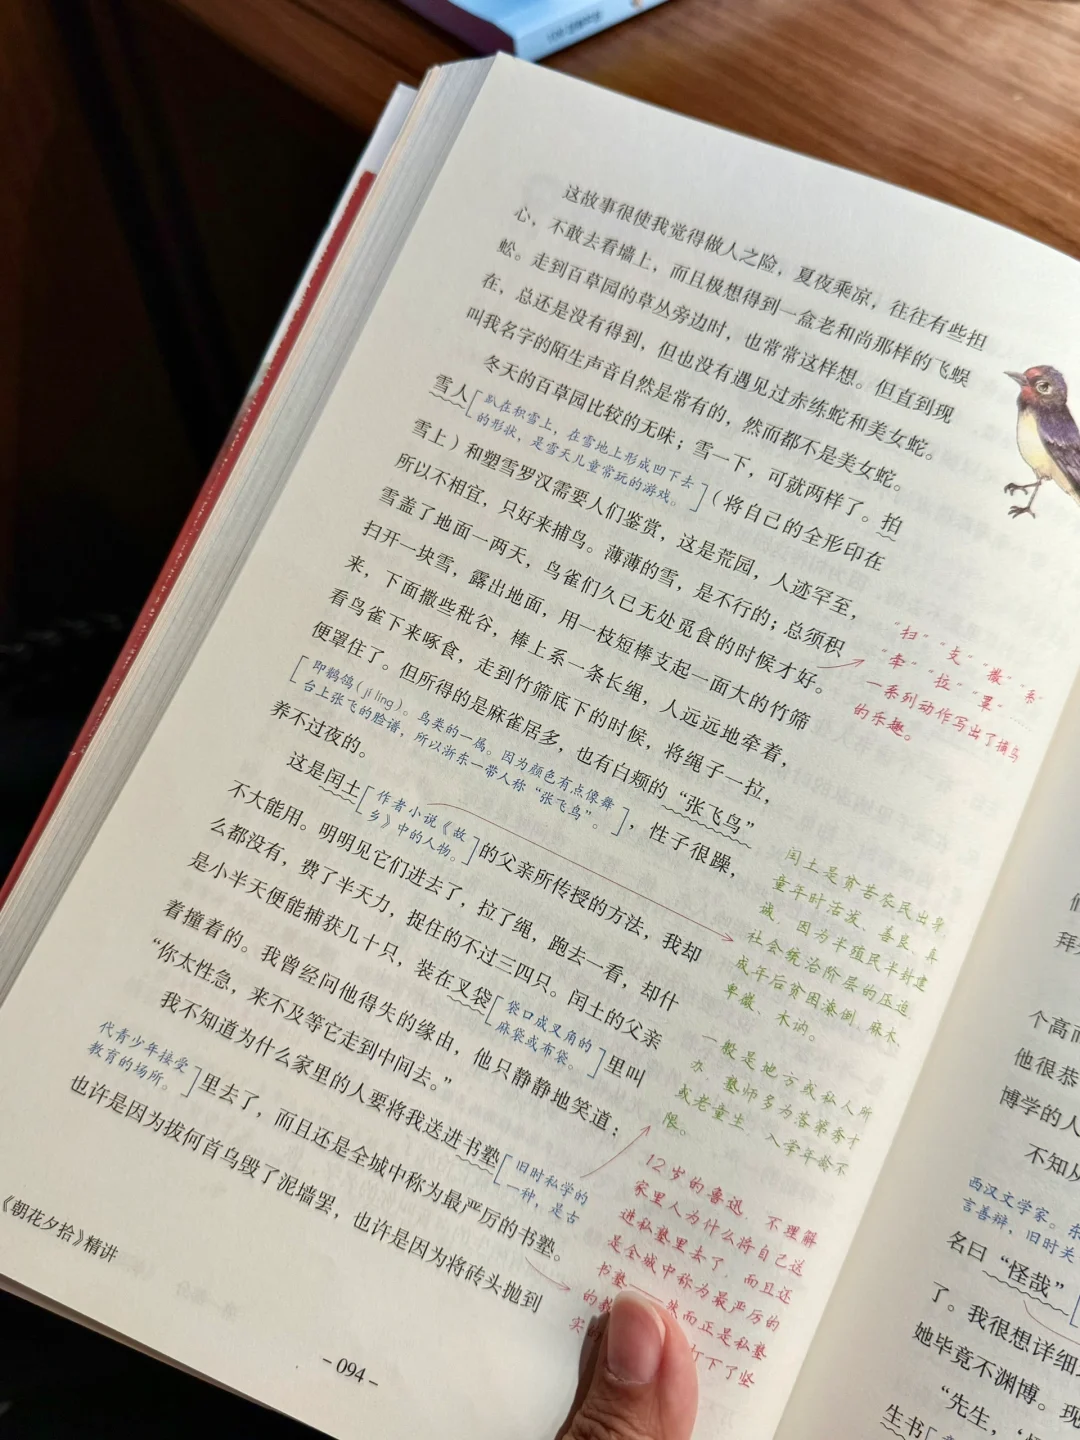 这故事很使我觉得做人之险，夏夜乘凉，往往有些担
心，不敢去看墙上，而且极想得到一盒老和尚那样的飞蜈
蚣。走到百草园的草丛旁边时，也常常这样想。但直到现
在，总还是没有得到，但也没有遇见过赤练蛇和美女蛇。
叫我名字的陌生声音自然是常有的，然而都不是美女蛇。
冬天的百草园比较的无味；雪一下，可就两样了。拍
雪人[趴在积雪上，在雪地上形成凹下去
的形状，是雪天儿童常玩的游戏。]（将自己的全形印在
雪上）和塑雪罗汉需要人们鉴赏，这是荒园，人迹罕至，
所以不相宜，只好来捕鸟。薄薄的雪，是不行的；总须积
雪盖了地面一两天，鸟雀们久已无处觅食的时候才好。
扫开一块雪，露出地面，用一枝短棒支起一面大的竹筛
来，下面撒些秕谷，棒上系一条长绳，人远远地牵着，
看鸟雀下来啄食，走到竹筛底下的时候，将绳子一拉，
便罩住了。但所得的是麻雀居多，也有白颊的“张飞鸟”
[即鹡鸰(jí líng)。鸟类的一属。因为颜色有点像舞
台上张飞的脸谱，所以浙东一带人称“张飞鸟”。]，性子很躁，
养不过夜的。
这是闰土[作者小说《故
乡》中的人物。]的父亲所传授的方法，我却
不大能用。明明见它们进去了，拉了绳，跑去一看，却什
么都没有，费了半天力，捉住的不过三四只。闰土的父亲
是小半天便能捕获几十只，装在叉袋[袋口成叉角的
麻袋或布袋。]里叫
着撞着的。我曾经问他得失的缘由，他只静静地笑道：
“你太性急，来不及等它走到中间去。”
我不知道为什么家里的人要将我送进书塾[旧时私学的
一种，是古
代青少年接受
教育的场所。]里去了，而且还是全城中称为最严厉的书塾。
也许是因为拔何首乌毁了泥墙罢，也许是因为将砖头抛到
“扫”“支”“撒”“系”
“牵”“拉”“罩”……
一系列动作写出了捕鸟
的乐趣。
闰土是贫苦农民出身，
童年时活泼、善良、真
诚，因为半殖民半封建
社会统治阶层的压迫
成年后贫困潦倒、麻木、
卑微、木讷。
一般是地方或私人所
办，塾师多为落第秀才
或老童生，入学年龄不
限。
12岁的鲁迅，不理解
家里人为什么将自己送
进私塾里去了，而且还
是全城中称为最严厉的
书塾——然而正是私塾
的
打下了坚
实
《朝花夕拾》精讲
- 094 -
拜
个高而
他很恭
博学的人
不知从
西汉文学家。东
言善辩，旧时关
名曰“怪哉”
了。我很想详细
她毕竟不渊博。现
“先生，‘
生书